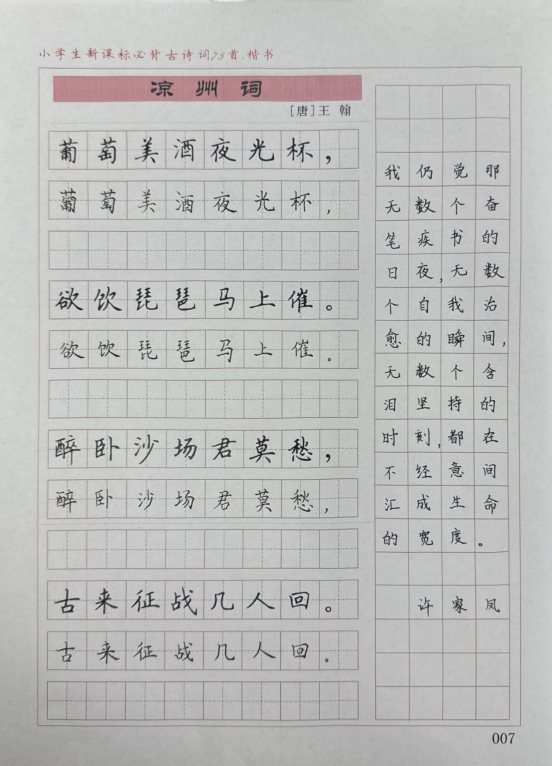 小学生新课标必背古诗词75首.楷书
凉州词
[唐]王翰
葡萄美酒夜光杯，
葡萄美酒夜光杯，
欲饮琵琶马上催。
欲饮琵琶马上催。
醉卧沙场君莫愁，
醉卧沙场君莫愁，
古来征战几人回。
古来征战几人回。
我仍觉那
无数个奋
笔疾书的
日夜，无数
个自我治
愈的瞬间，
无数个含
泪坚持的
时刻，都在
不经意间
汇成生命
的宽度。
许家凤
007